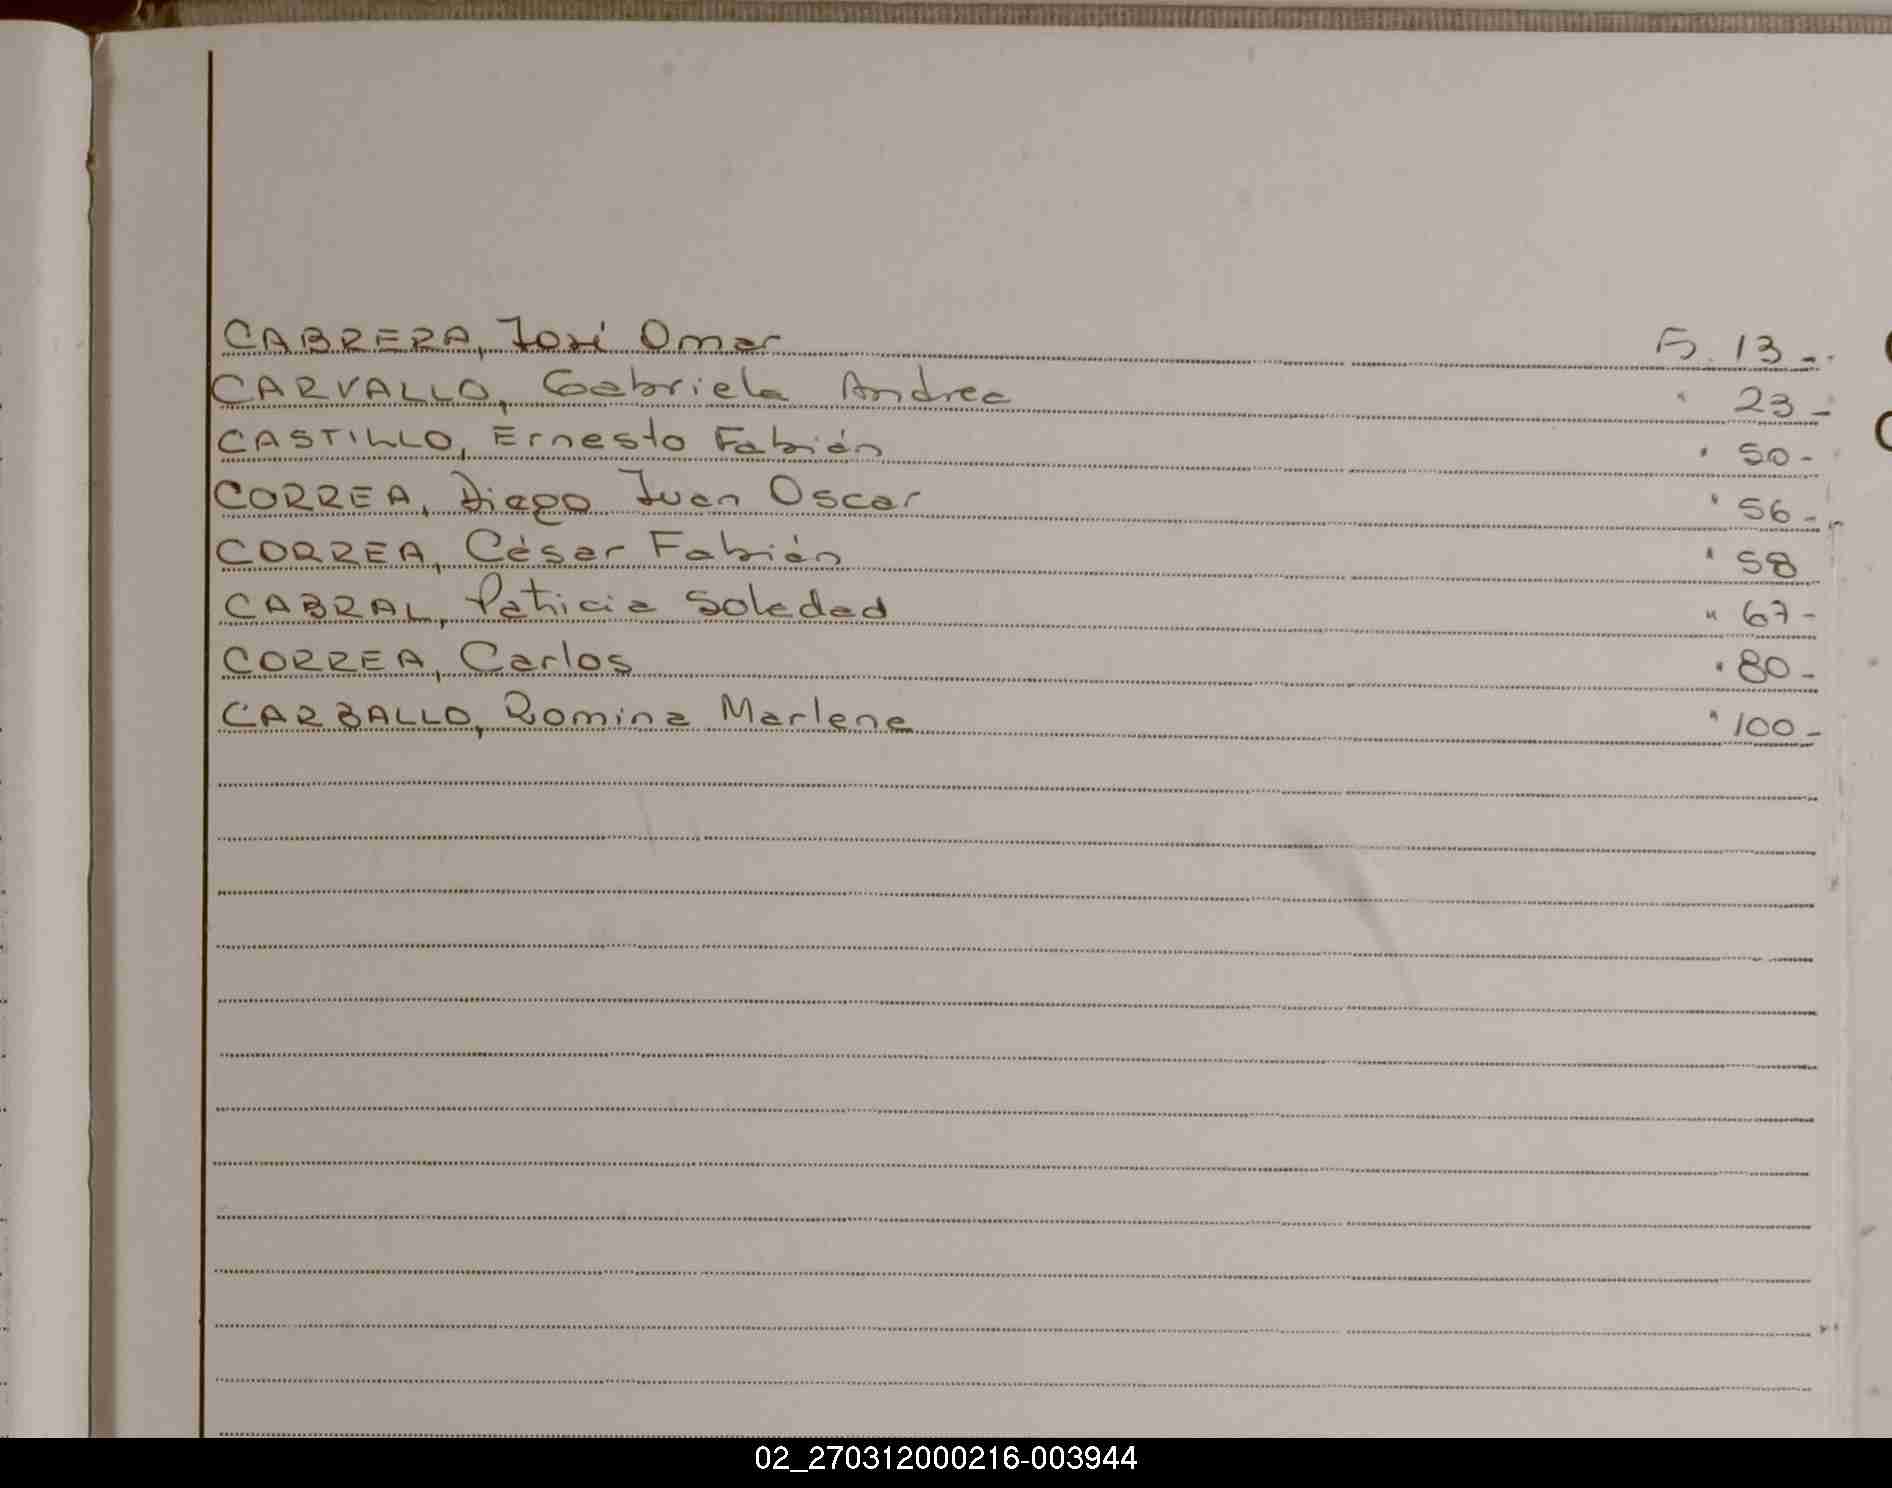 CABRERA, José Omar F. 13-
CARVALLO, Gabriela Andrea " 23-
CASTILLO, Ernesto Fabián " 50-
CORREA, Diego Juan Oscar " 56-
CORREA, César Fabián " 58
CABRAL, Patricia Soledad " 67-
CORREA, Carlos " 80-
CARBALLO, Romina Marlene " 100-
02_270312000216-003944